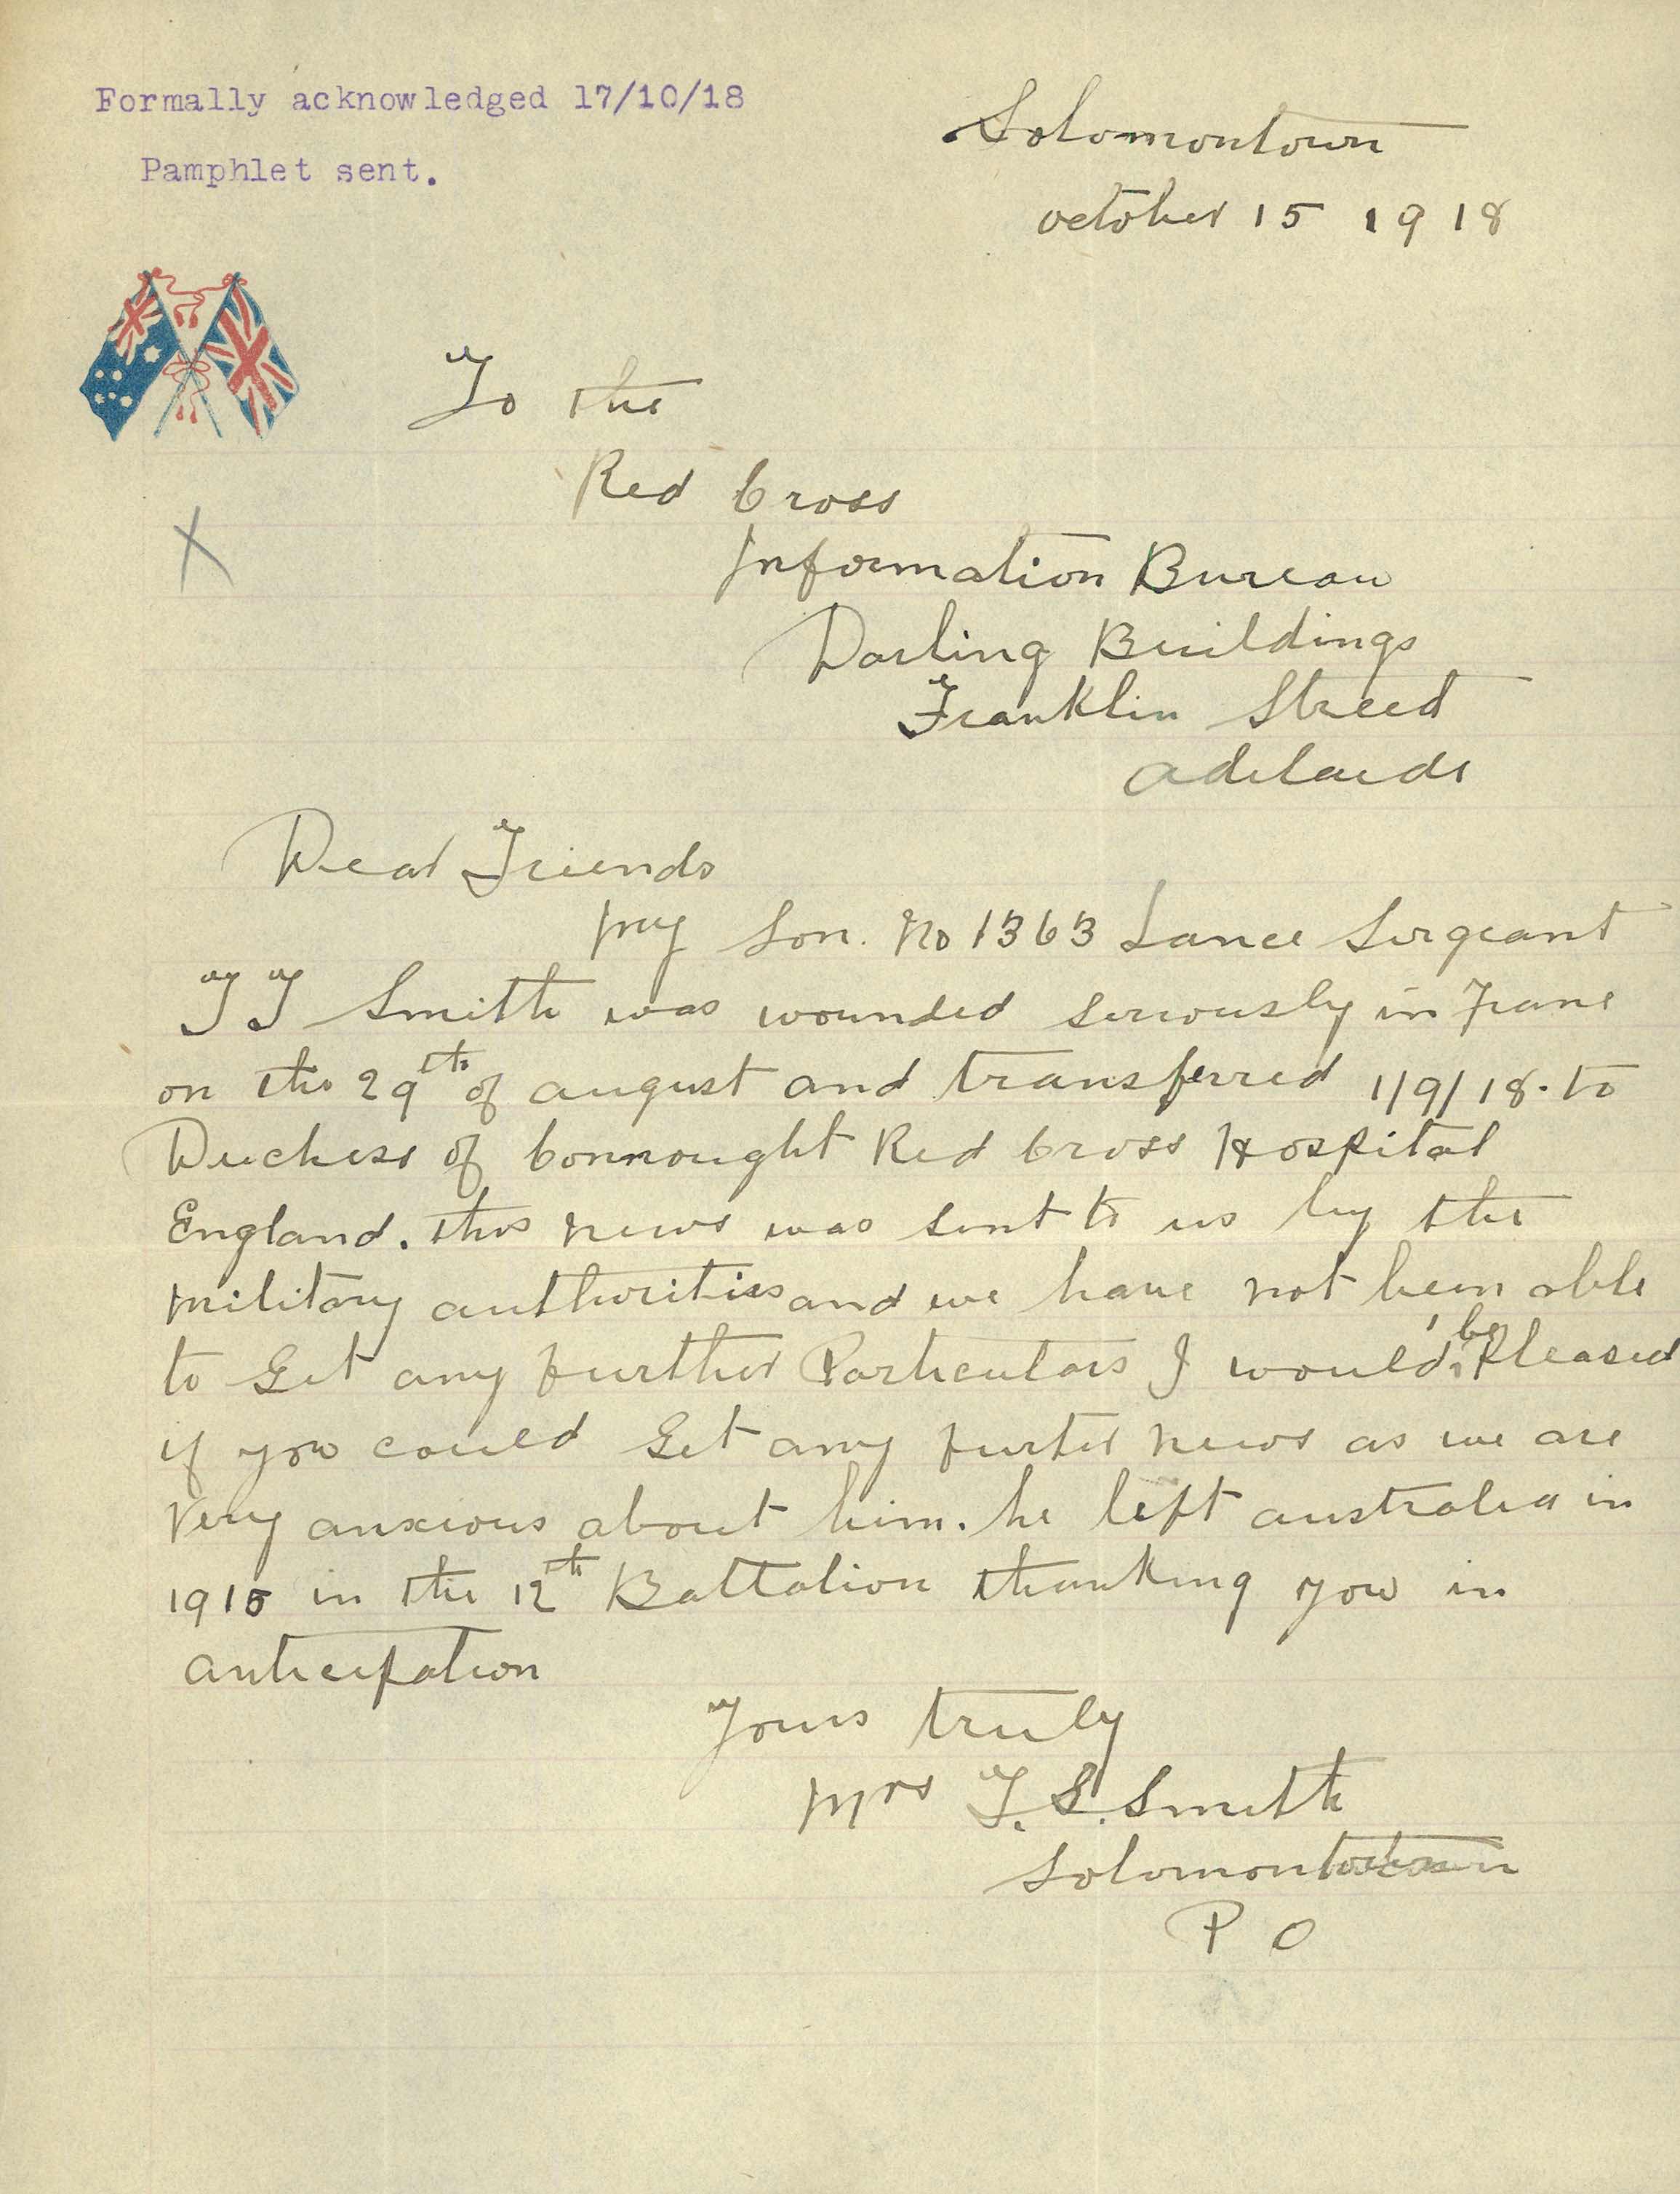 Formally acknowledged 17/10/18
Pamphlet sent.
Solomontown
october 15 1918
To the
Red Cross
Information Bureau
Darling Buildings
Franklin Streed
adelaide
Dear Friends
my Son. No 1363 Lance Sergeant
T T Smith was wounded seriously in Frane
on the 29th of august and transferred 1/9/18. to
Duchess of Connought Red Cross Hospital
England. this news was sent to us by the
military authorities and we have not been able
to Get any further Particulars I would be Pleased
if you could Get any furter news as we are
very anxious about him. he left australia in
1915 in the 12th Battalion thanking you in
anticipation
Yours truly
Mrs T. S. Smith
Solomontown
P O